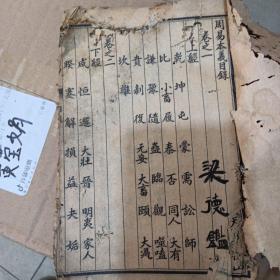 周易本義目錄
卷之一
上經
乾 坤 屯 蒙 需 訟 師
比 小畜 履 泰 否 同人 大有
謙 豫 隨 蠱 臨 觀 噬嗑
賁 剝 復 无妄 大畜 頤 大過
坎 離
卷之二
下經
咸 恒 遯 大壯 晉 明夷 家人
睽 蹇 解 損 益 夬 姤
梁德鑑